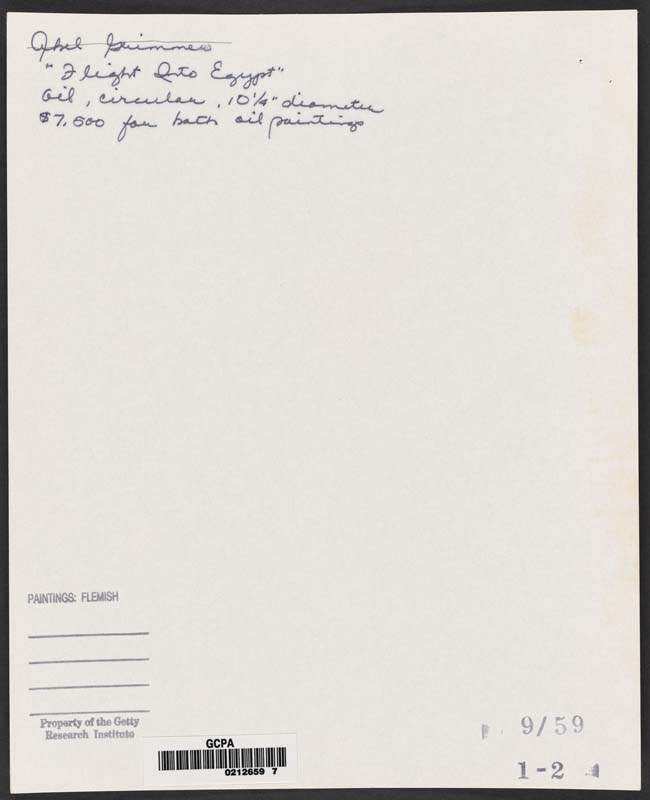 Abel Grimmer
"Flight Into Egypt"
Oil, circular, 10 1/4" diameter
$7,500 for both oil paintings
PAINTINGS: FLEMISH
Property of the Getty
Research Institute
GCPA
0212659 7
9/59
1-2